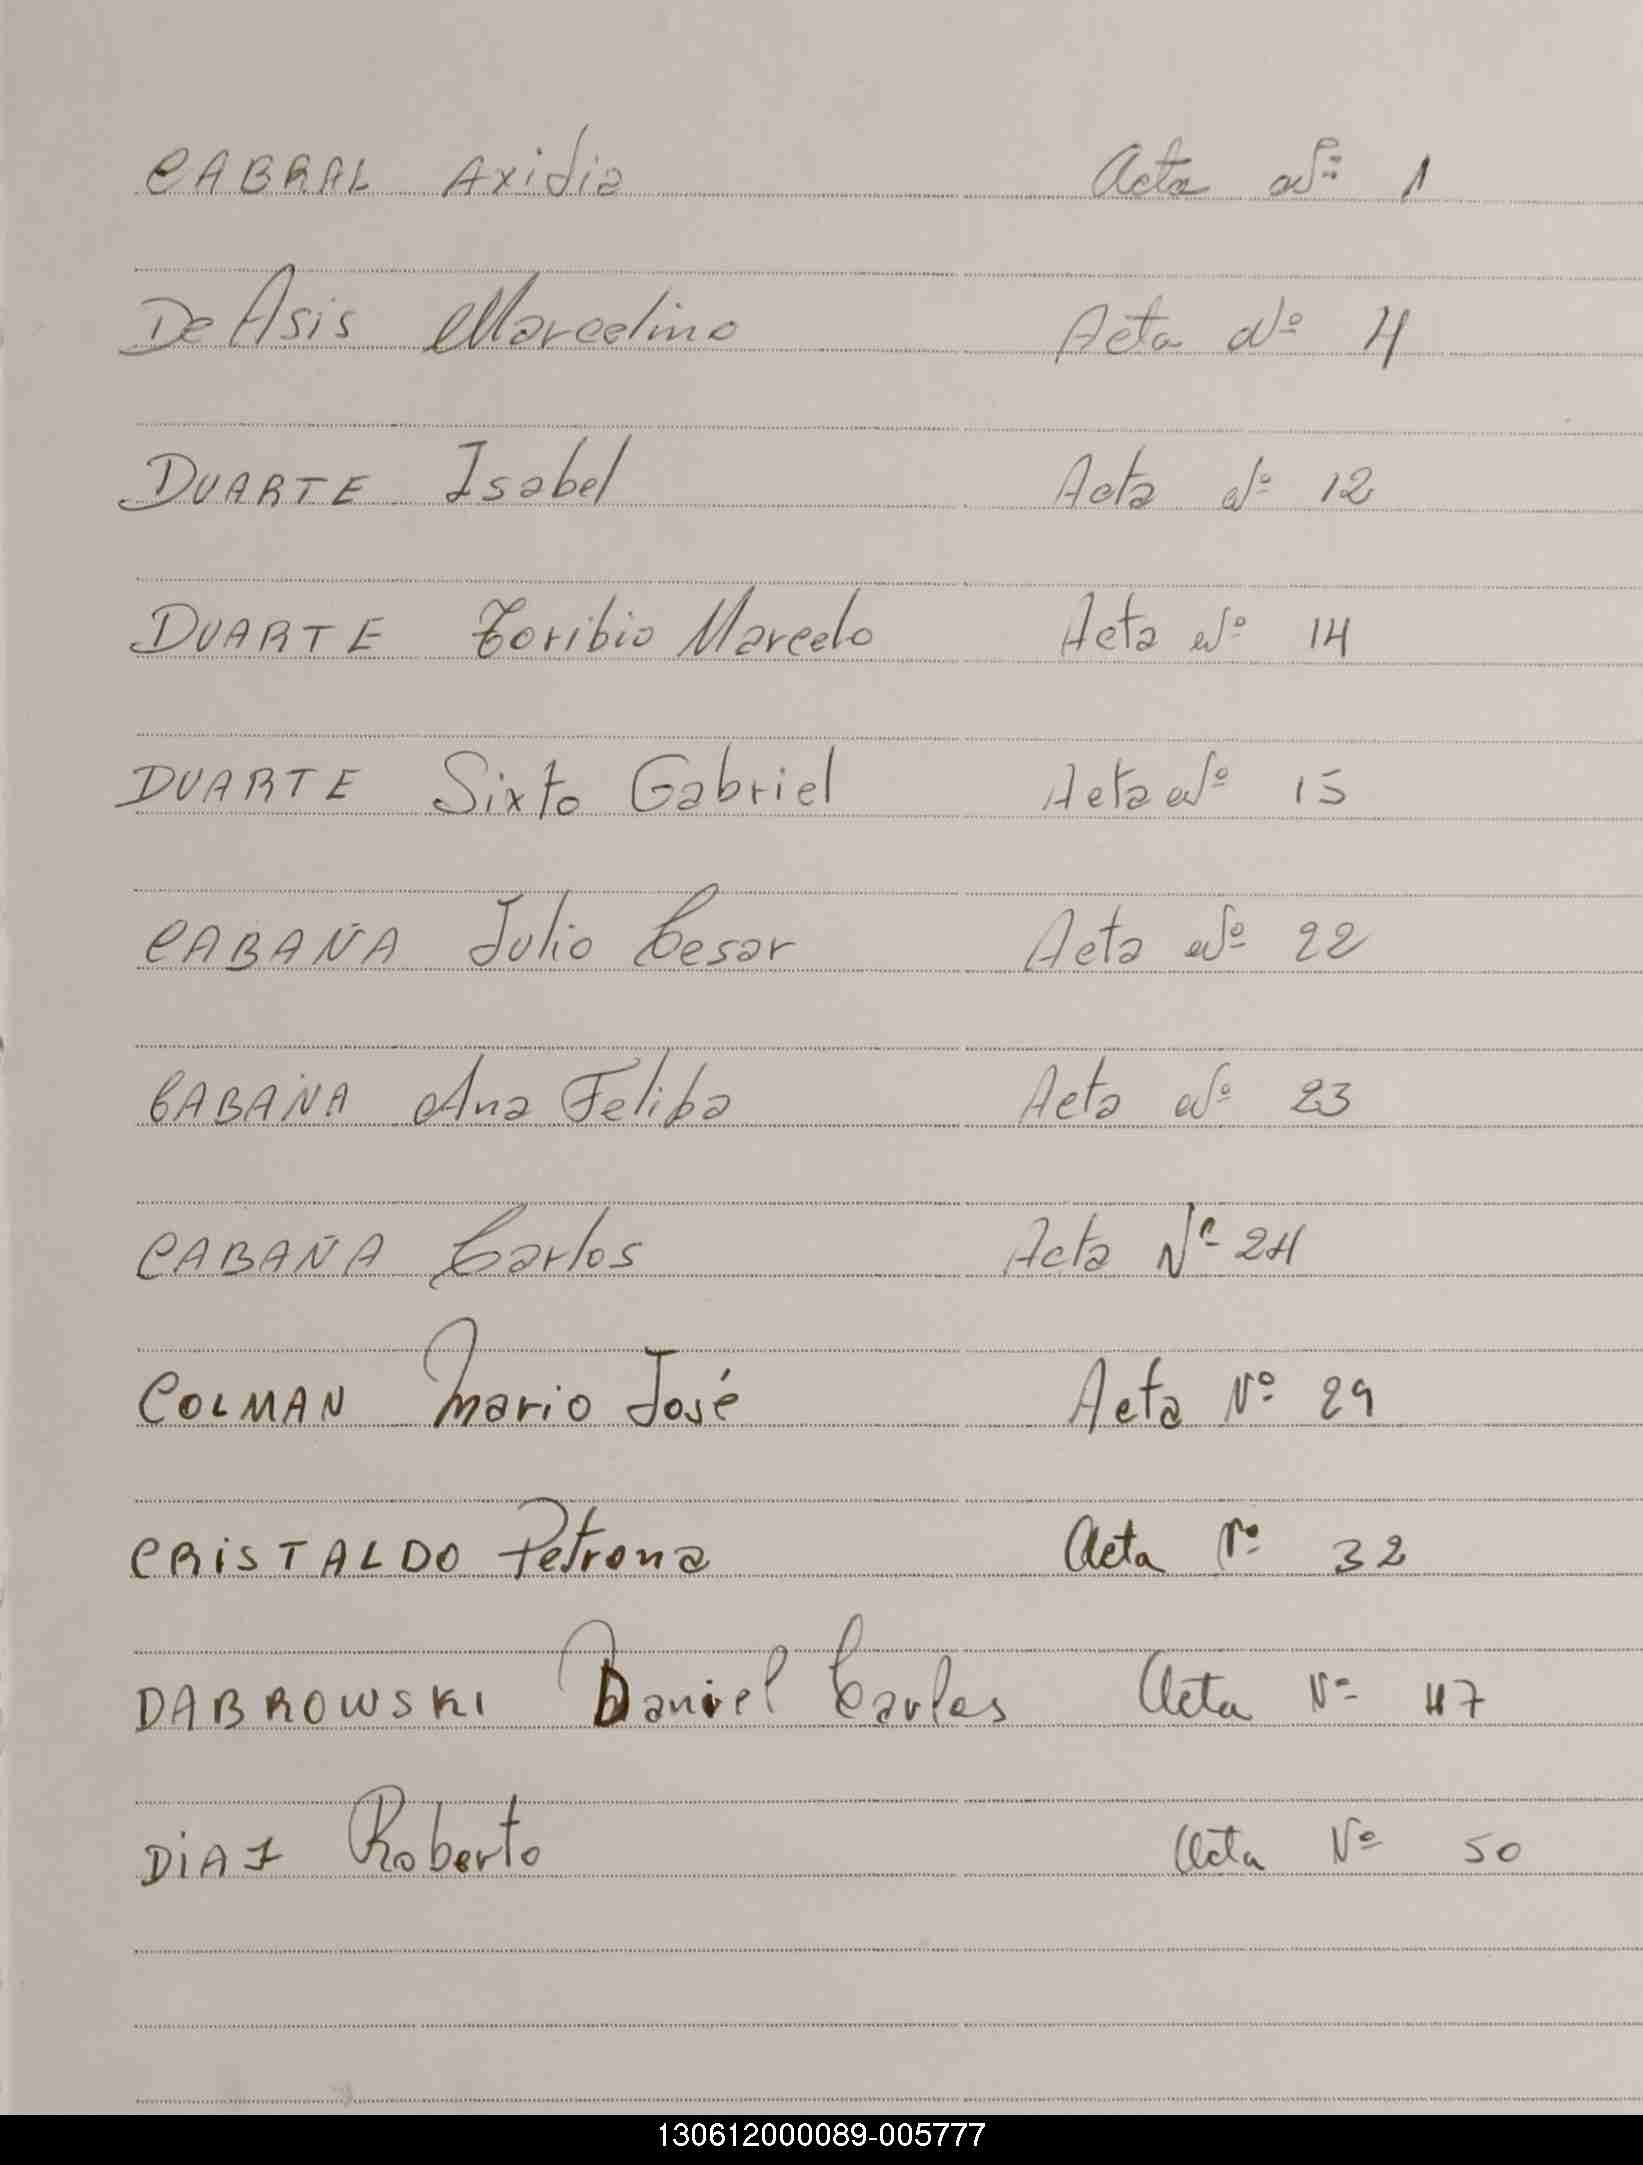 CABRAL Axidia Acta Nº 1
De Asis Marcelino Acta Nº 4
DUARTE Isabel Acta Nº 12
DUARTE Toribio Marcelo Acta Nº 14
DUARTE Sixto Gabriel Acta Nº 15
CABAÑA Julio Cesar Acta Nº 22
CABAÑA Ana Feliba Acta Nº 23
CABAÑA Carlos Acta Nº 24
COLMAN Mario José Acta Nº 29
CRISTALDO Petrona Acta Nº 32
DABROWSKI Daniel Carlos Acta Nº 47
DiAz Roberto Acta Nº 50
130612000089-005777